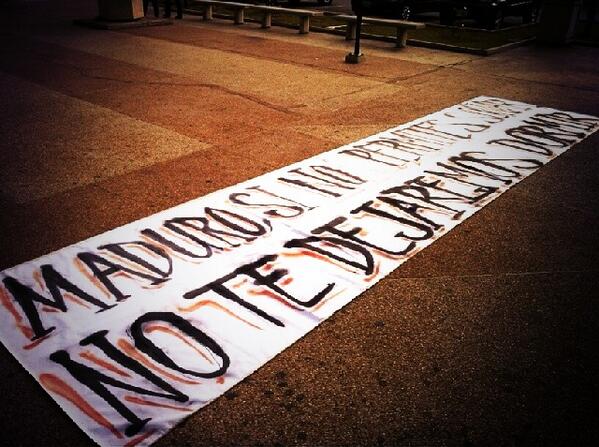 MADURO SI NO PERMITES SOÑAR
NO TE DEJAREMOS DORMIR